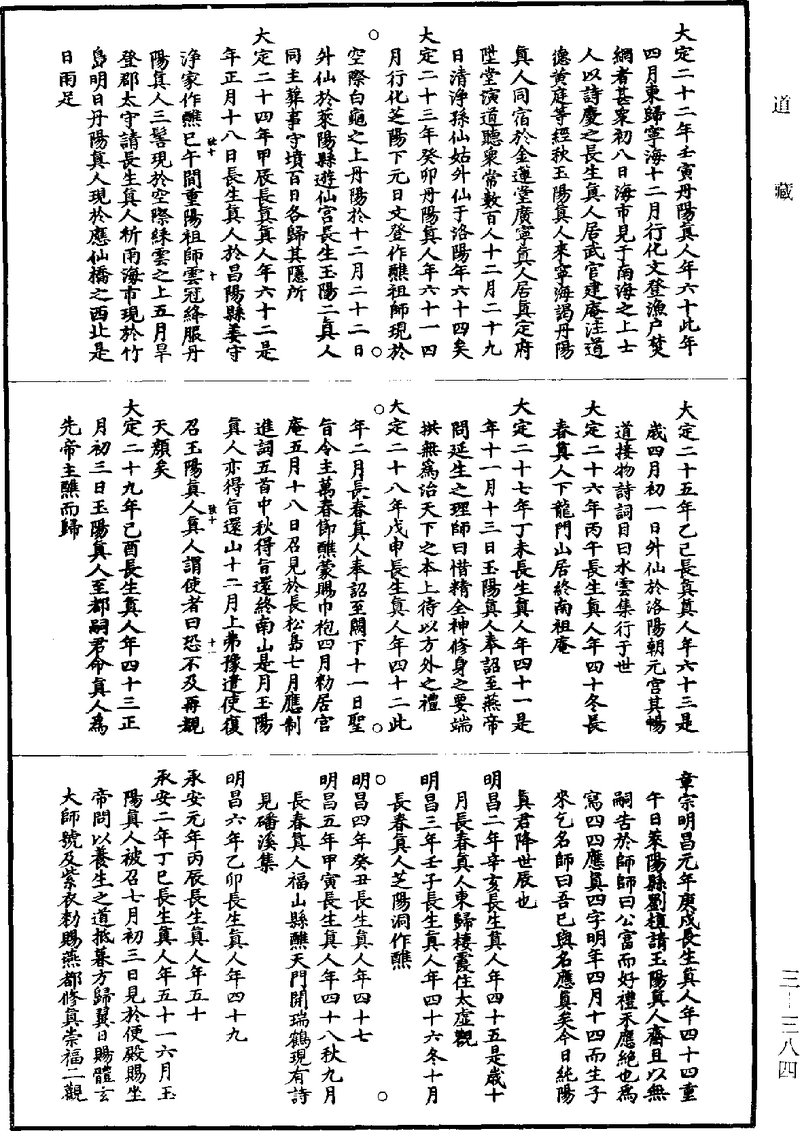 道藏
大定二十二年壬寅丹陽真人年六十此年
四月東歸寧海十二月行化文登漁户焚
網者甚衆初八日海市見于南海之上士
人以詩慶之長生真人居武官建庵注道
德黄庭等經秋玉陽真人來寧海謁丹陽
真人同宿於金蓮堂廣寧真人居真定府
陞堂演道聽衆常數百人十二月二十九
日清淨孫仙姑外仙于洛陽年六十四矣
大定二十三年癸卯丹陽真人年六十一四
月行化芝陽下元日文登作醮祖師現於
空際白龜之上丹陽於十二月二十二日
外仙於萊陽縣遊仙宫長生玉陽二真人
同主葬事守墳百日各歸其隱所
大定二十四年甲辰長真真人年六十二是
年正月十八日長生真人於昌陽縣姜守
淨家作醮巳午間重陽祖師雲冠絳服丹
陽真人三髻現於空際綵雲之上五月旱
登郡太守請長生真人祈南海市現於竹
島明日丹陽真人現於應仙橋之西北是
日雨足
大定二十五年乙巳長真真人年六十三是
歲四月初一日外仙於洛陽朝元宫其暢
道接物詩詞目曰水雲集行于世
大定二十六年丙午長生真人年四十冬長
春真人下龍門山居終南祖庵
大定二十七年丁未長生真人年四十一是
年十一月十三日玉陽真人奉詔至燕帝
問延生之理師曰惜精全神修身之要端
拱無為治天下之本上待以方外之禮
大定二十八年戊申長生真人年四十二此
年二月長春真人奉詔至闕下十一日聖
旨令主萬春節醮蒙賜巾袍四月勑居官
庵五月十八日召見於長松島七月應制
進詞五首中秋得旨還終南山是月玉陽
真人亦得旨還山十二月上弗豫遣使復
召玉陽真人真人謂使者曰恐不及再覩
天顏矣
大定二十九年己酉長生真人年四十三正
月初三日玉陽真人至都嗣君命真人為
先帝主醮而歸
章宗明昌元年庚戌長生真人年四十四重
午日萊陽縣劉植請玉陽真人齋且以無
嗣告於師師曰公富而好禮未應絶也為
寫四四應真四字明年四月十四而生子
來乞名師曰吾已與名應真矣今日純陽
真君降世辰也
明昌二年辛亥長生真人年四十五是歲十
月長春真人東歸棲霞住太虛觀
明昌三年壬子長生真人年四十六冬十月
長春真人芝陽洞作醮
明昌四年癸丑長生真人年四十七
明昌五年甲寅長生真人年四十八秋九月
長春真人福山縣醮天門開瑞鶴現有詩
見磻溪集
明昌六年乙卯長生真人年四十九
承安元年丙辰長生真人年五十
承安二年丁巳長生真人年五十一六月玉
陽真人被召七月初三日見於便殿賜坐
帝問以養生之道抵暮方歸翼日賜體玄
大師號及紫衣勑賜燕都修真崇福二觀
三一三八四